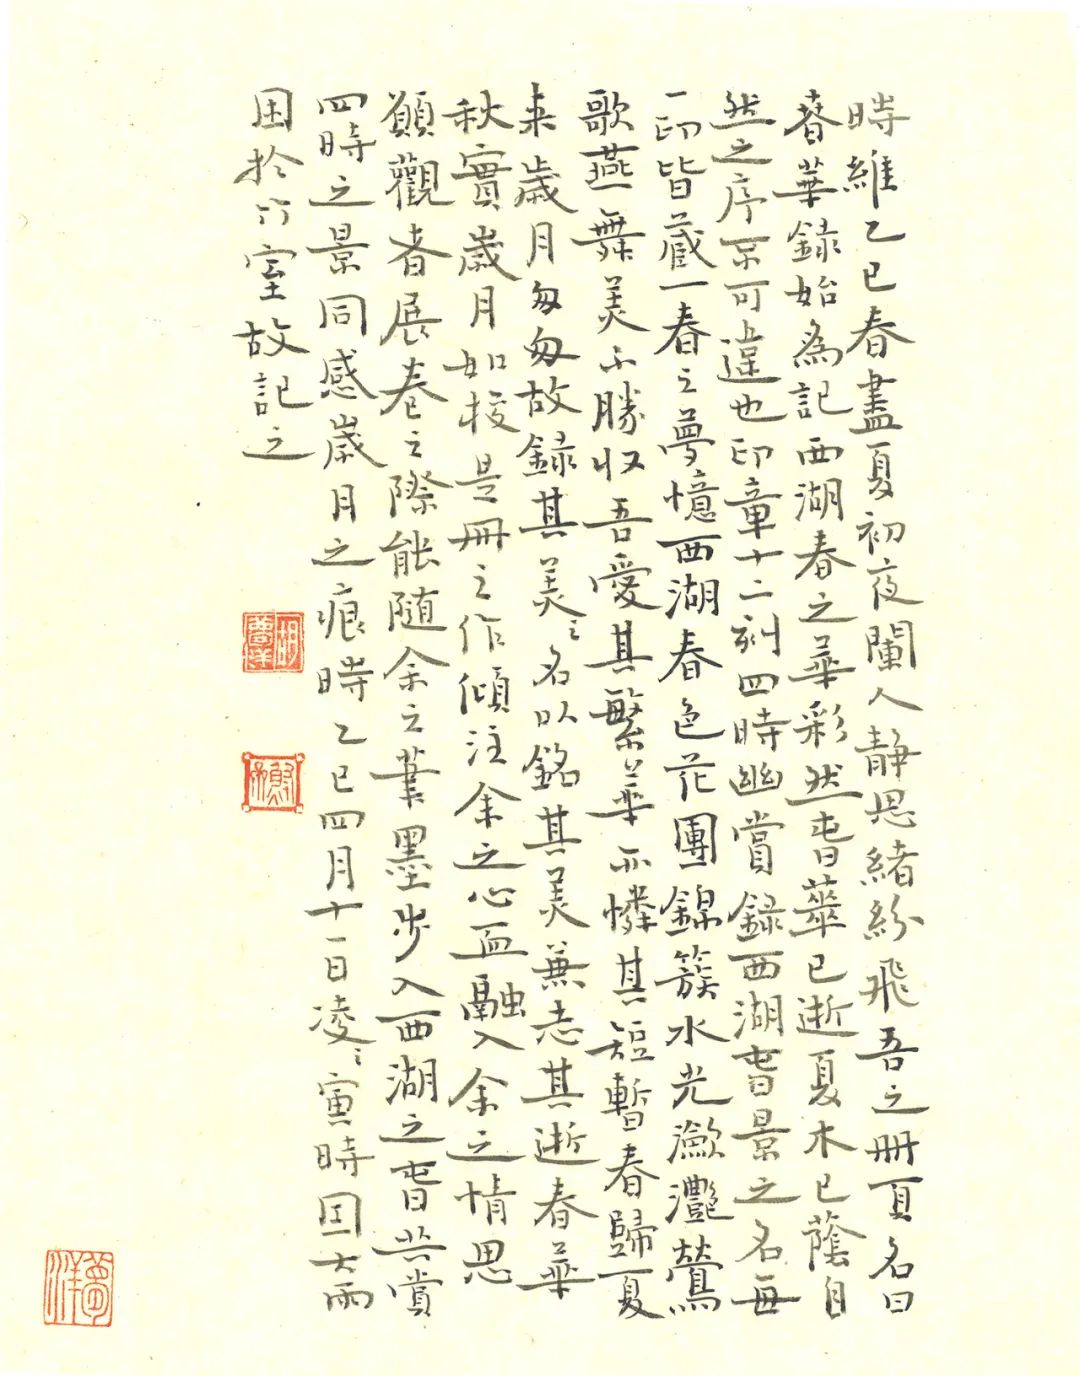 時維乙巳春盡夏初夜闌人静思緒紛飛吾之冊頁名曰
春華録始為記西湖春之華彩然春華已逝夏木已蔭自
然之序不可違也印章十二刻四時幽賞録西湖春景之名每
一印皆蔵一春之夢憶西湖春色花團錦簇水光瀲灧鶯
歌燕舞美不勝收吾愛其繁華亦憐其短暫春歸夏
来歲月匆匆故録其美々名以銘其美兼志其逝春華
秋實歲月如梭是冊之作傾注余之心血融入余之情思
願觀者展卷之際能随余之筆墨步入西湖之春共賞
四時之景同感歲月之痕時乙巳四月十一日凌々寅時因大雨
困於竹室故記之
胡夢洋
夢洋